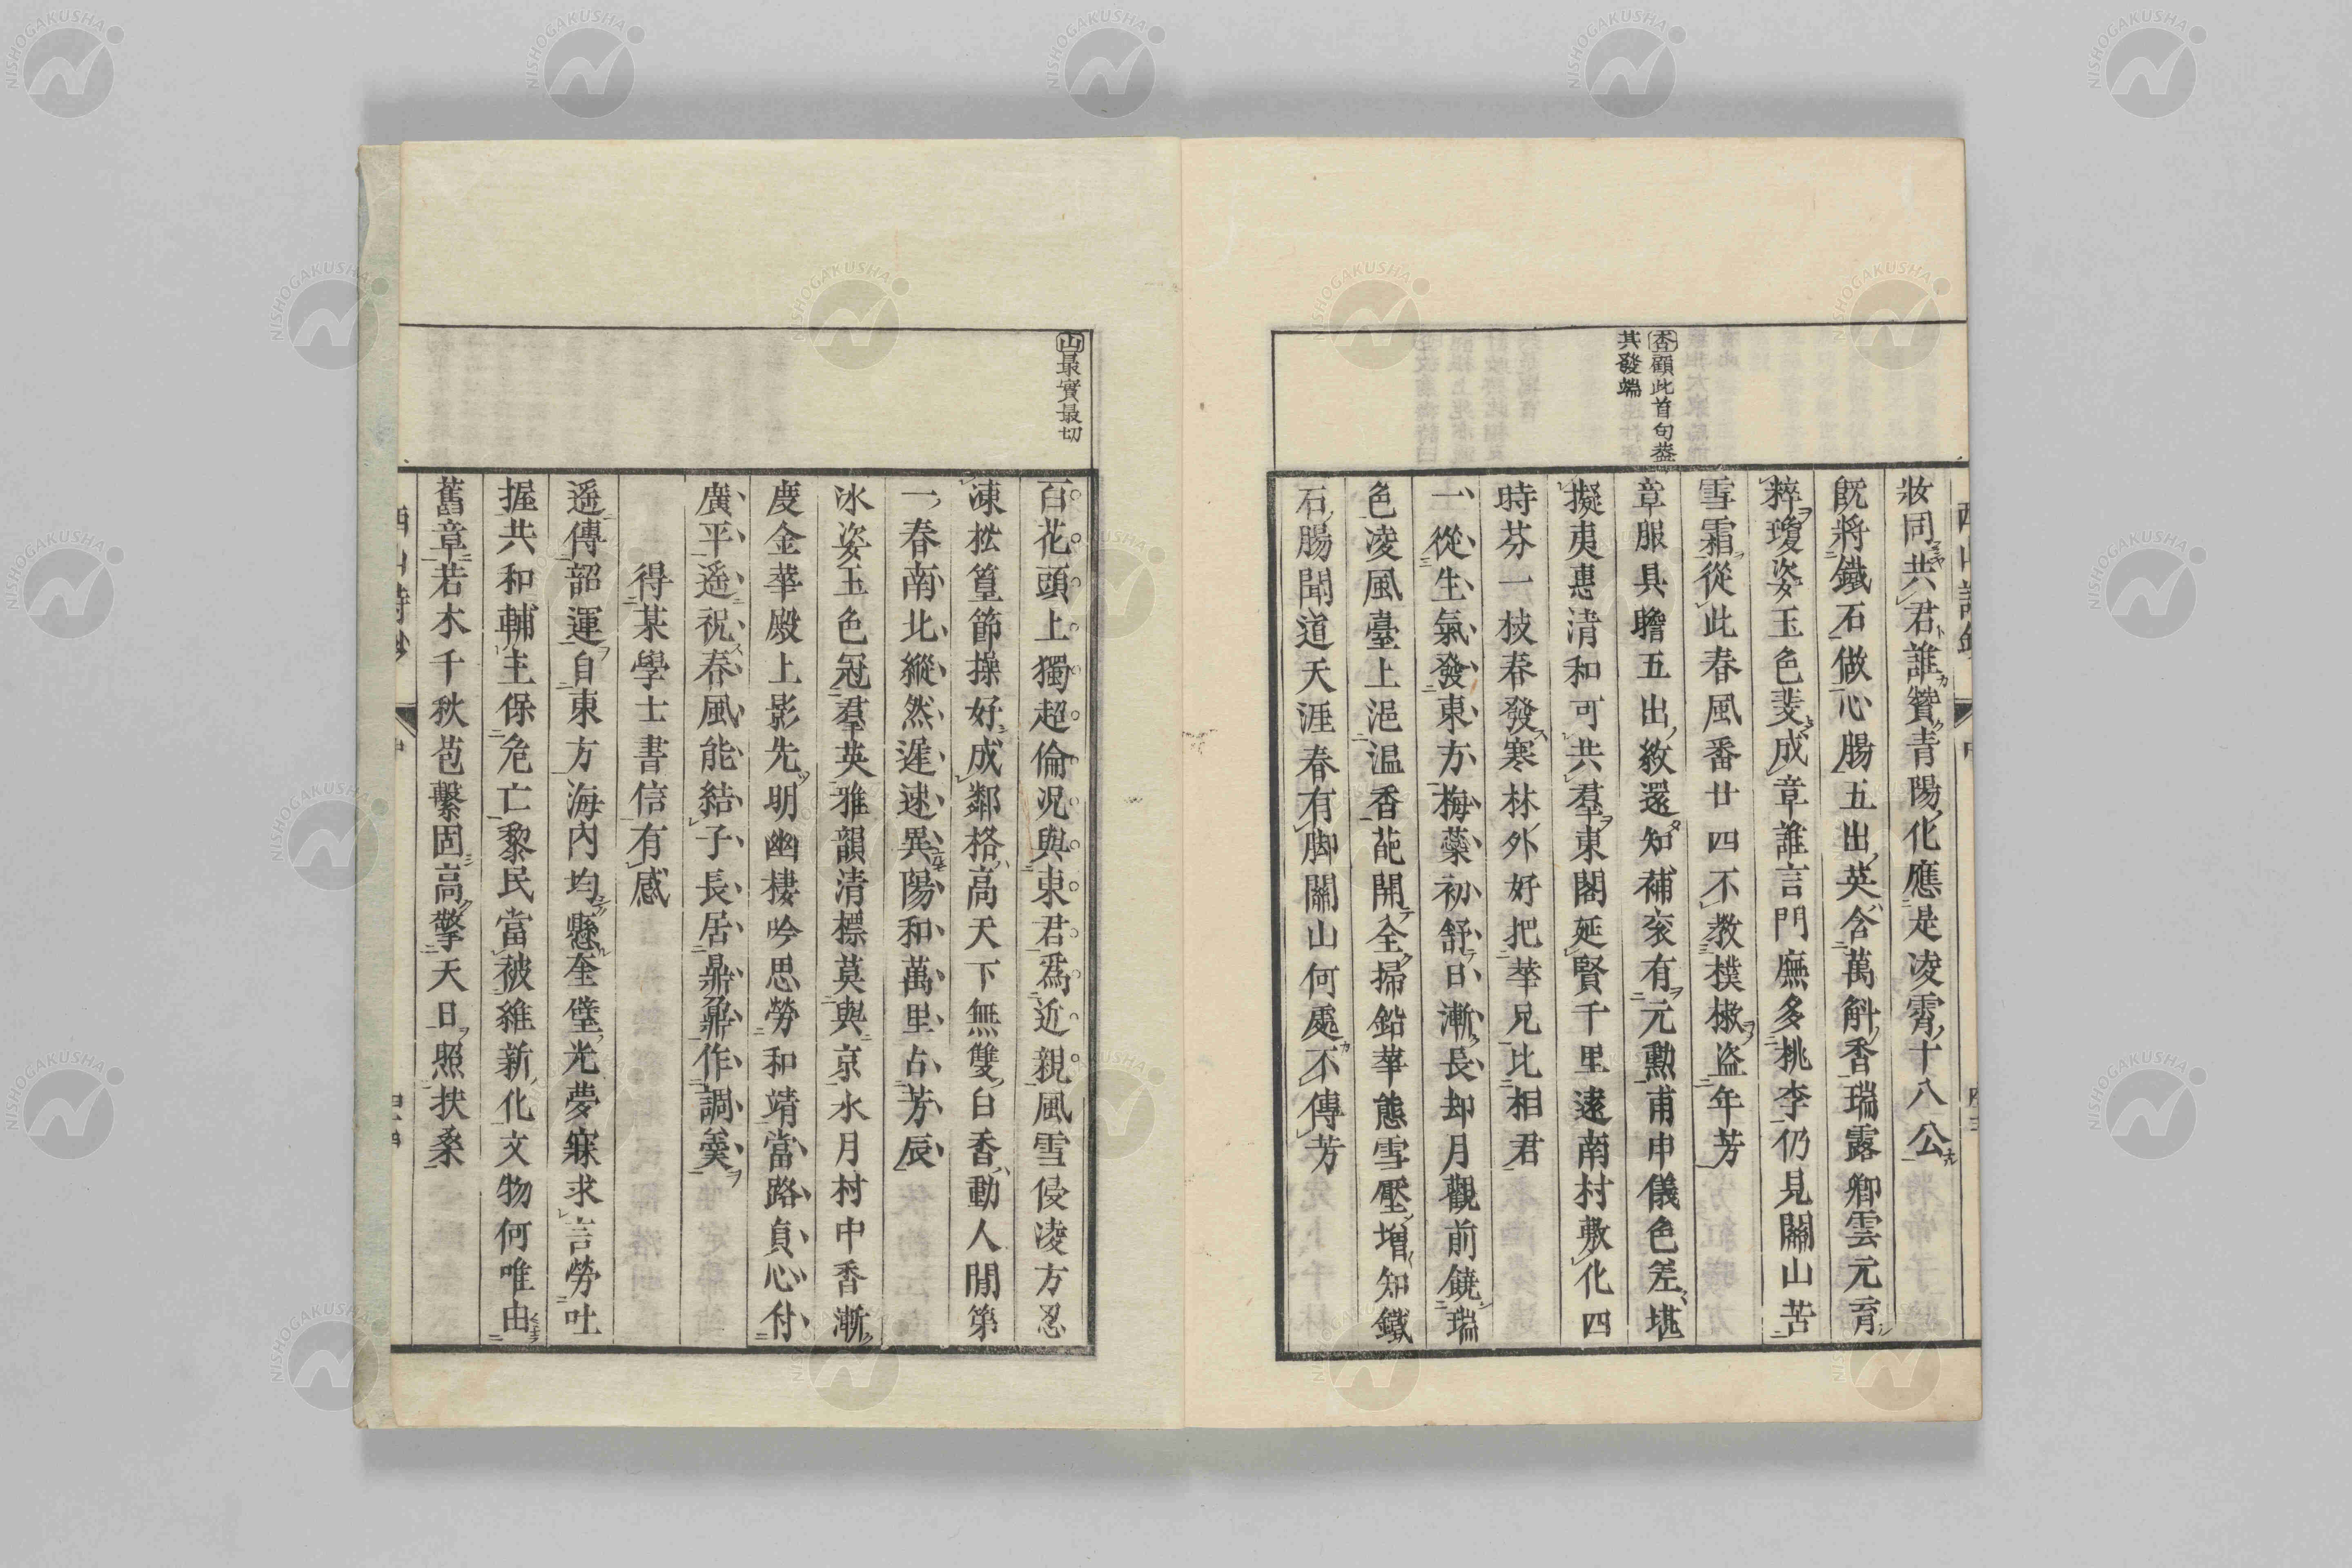 杏顧此首句蓋
其發端
妝同共君誰贊青陽化應是凌霄十八公
既將鐵石做心腸五出英含萬斛香瑞露卿雲元育
粹瓊姿玉色斐成章誰言門廡多桃李仍見關山苦
雪霜從此春風番廿四不教樸樕盜年芳
章服具瞻五出紋還知補袞有元勲甫申儀色差堪
擬夷惠清和可共羣東閣延賢千里遠南村敷化四
時芬一枝春發寒林外好把華兄比相君
一從生氣發東方梅蘂初舒日漸長却月觀前饒瑞
色凌風臺上浥温香葩開全掃鉛華態雪壓增知鐵
石腸聞道天涯春有脚關山何處不傳芳
山最實最切
百花頭上獨超倫況與東君爲近親風雪侵凌方忍
凍松篁節操好成鄰格高天下無雙白香動人間第
一春南北縱然遲速異陽和萬里占芳辰
冰姿玉色冠羣英雅韻清標莫與京水月村中香漸
度金華殿上影先明幽棲吟思勞和靖當路貞心付
廣平遥祝春風能結子長居鼎鼐作調羹
得某學士書信有感
遥傳韶運自東方海内均懸奎璧光夢寐求言勞吐
握共和輔主保危亡黎民當被維新化文物何唯由
舊章若木千秋苞繫固高擎天日照扶桑
NISHOGAKUSHA